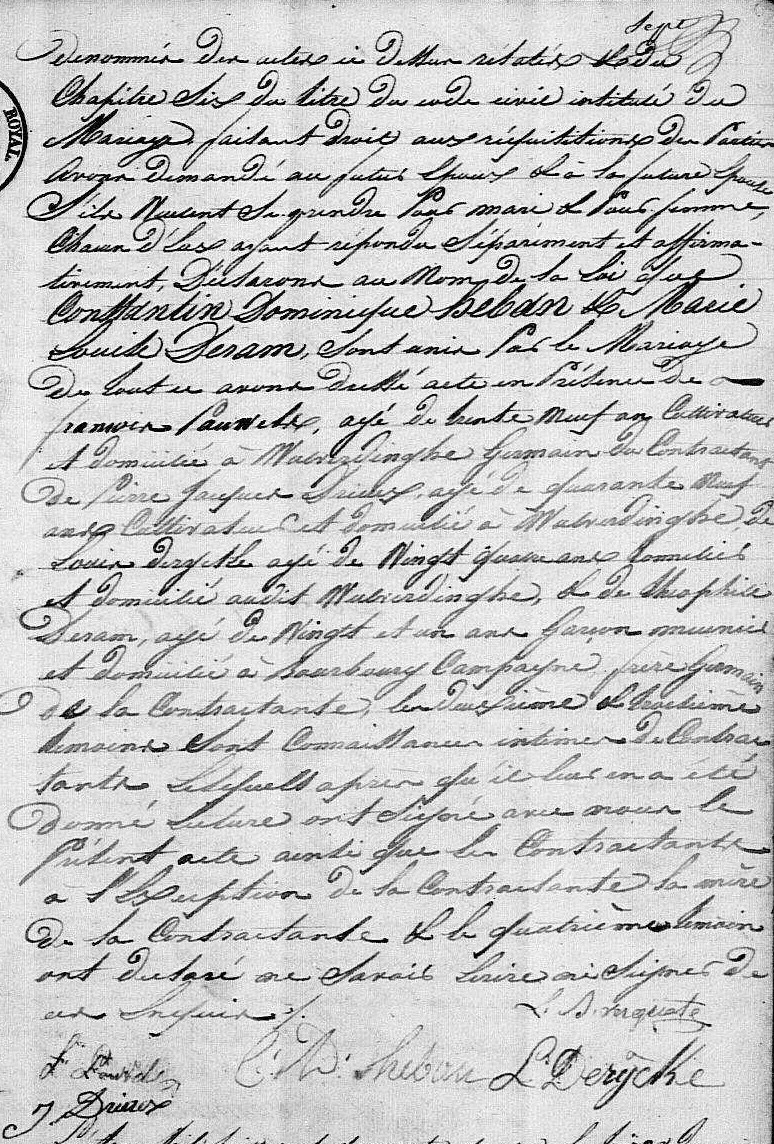 Sept
ROYAL
denommés des actes ci dessus relatés & du
Chapitre Six du titre du code civil intitulé du
Mariage, faisant droit aux réquisitions des Parties
avons demandé au futur Epoux & à la future Epouse
S'ils Veulent Se prendre Pour mari & Pour femme,
Chacun d'Eux ayant répondu Séparément et affirma-
tivement, Déclarons au Nom de la Loi que
Constantin Dominique heban & Marie
Louise Deram, Sont unis Par le Mariage
De tout ce avons dressé acte en Présence de
francois Pauwels, agé de trente Neuf ans Cultivateur
et domicilié à Wulverdinghe Germain du Contractant
De Pierre Jacques Drieux, agé de quarante Neuf
ans Cultivateur et domicilié à Wulverdinghe, de
Louis derycke agé de Vingt quatre ans
et domicilié audit Wulverdinghe, & de theophile
Deram, agé de Vingt et un ans Garçon meunier
et domicilié à Bourbourg Campagne, frère Germain
de la Contractante, les deuxième & troisième
temoins Sont Connaissances intimes des Contrac
tants Lesquels après qu'il leur en a été
donné Lecture ont Signé avec nous le
Présent acte ainsi que les Contractants
à l'Exception de la Contractante la mère
de la Contractante & le quatrième temoin
ont declaré ne Savoir Ecrire ni Signer de
ce Enquis /.
C. D. heban L. Derÿcke
J Drieux